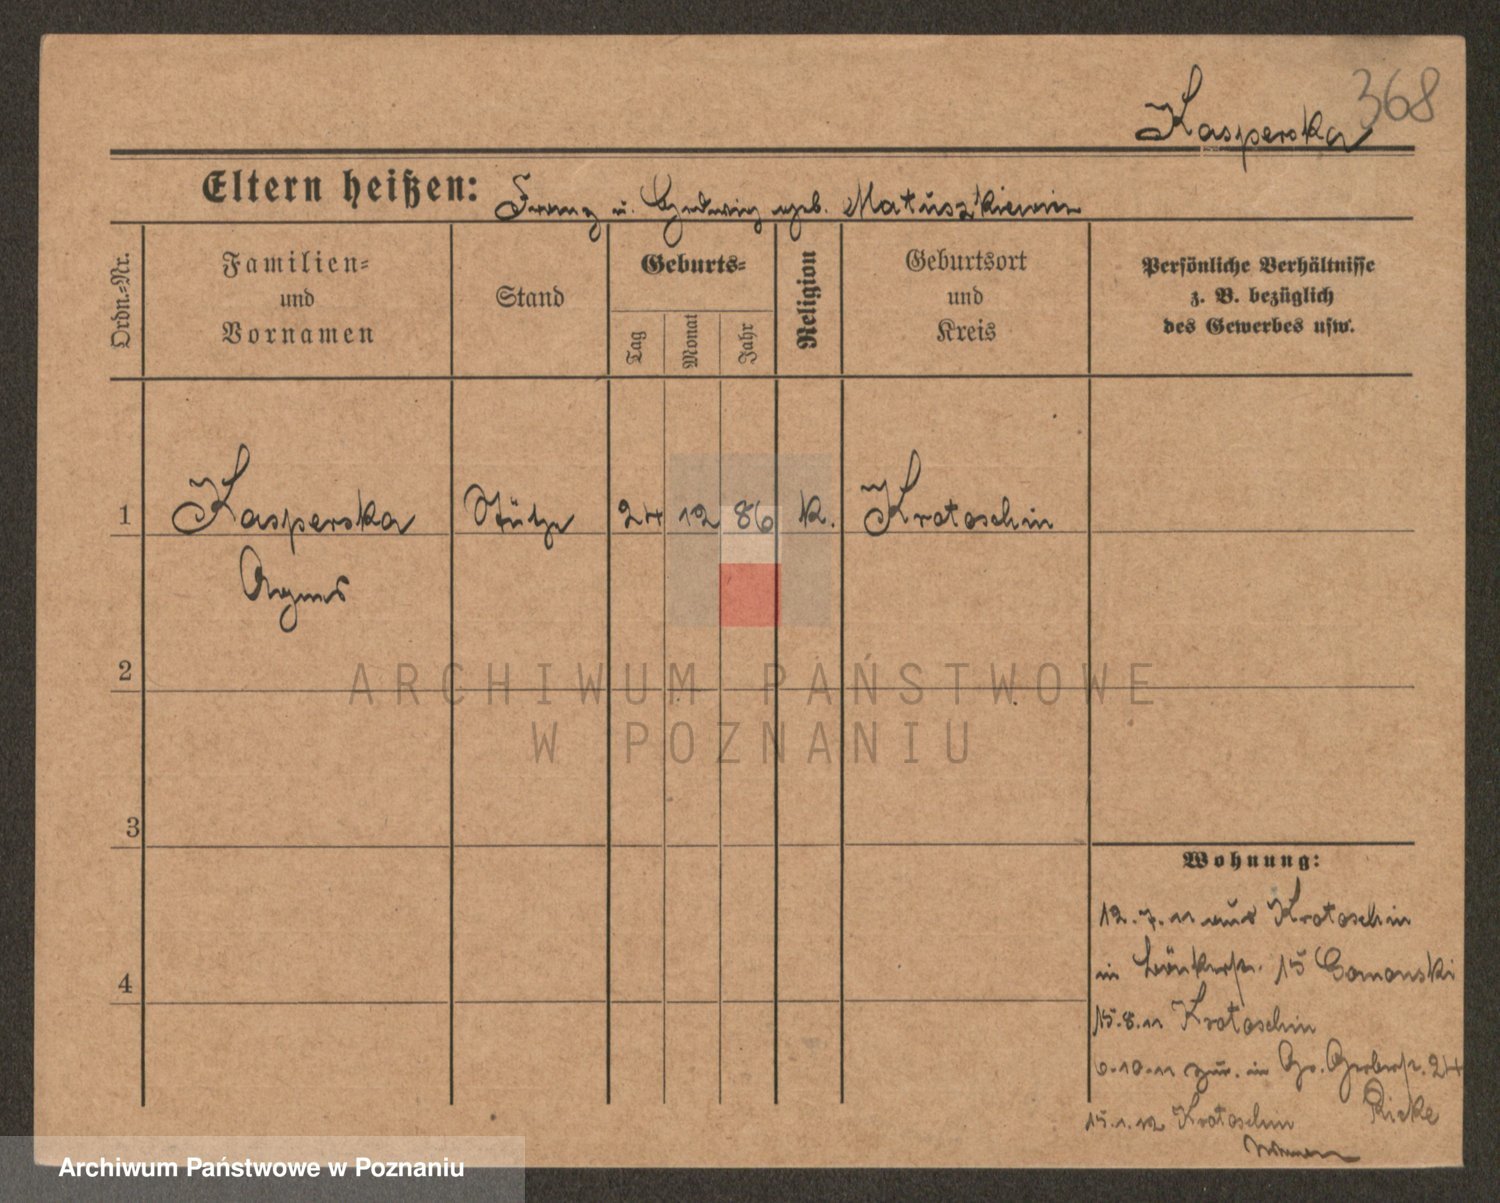 368
Kasperska
Eltern heißen: Franz u. Hedwig geb. Matuszkiewicz
Ordn.-Nr.
Familien-
und
Vornamen
Stand
Geburts-
Tag
Monat
Jahr
Religion
Geburtsort
und
Kreis
Persönliche Verhältnisse
z. B. bezüglich
des Gewerbes usw.
1 Kasperska Stütze 24 12 86 k. Krotoschin
Agnes
2
ARCHIWUM PAŃSTWOWE
W POZNANIU
3
4
Wohnung:
12.7.11 aus Krotoschin
in 15
15.8.11 Krotoschin
6.10.11 zur. in Gr. Gerberstr. 24
Ricke
15.1.12 Krotoschin
Archiwum Państwowe w Poznaniu